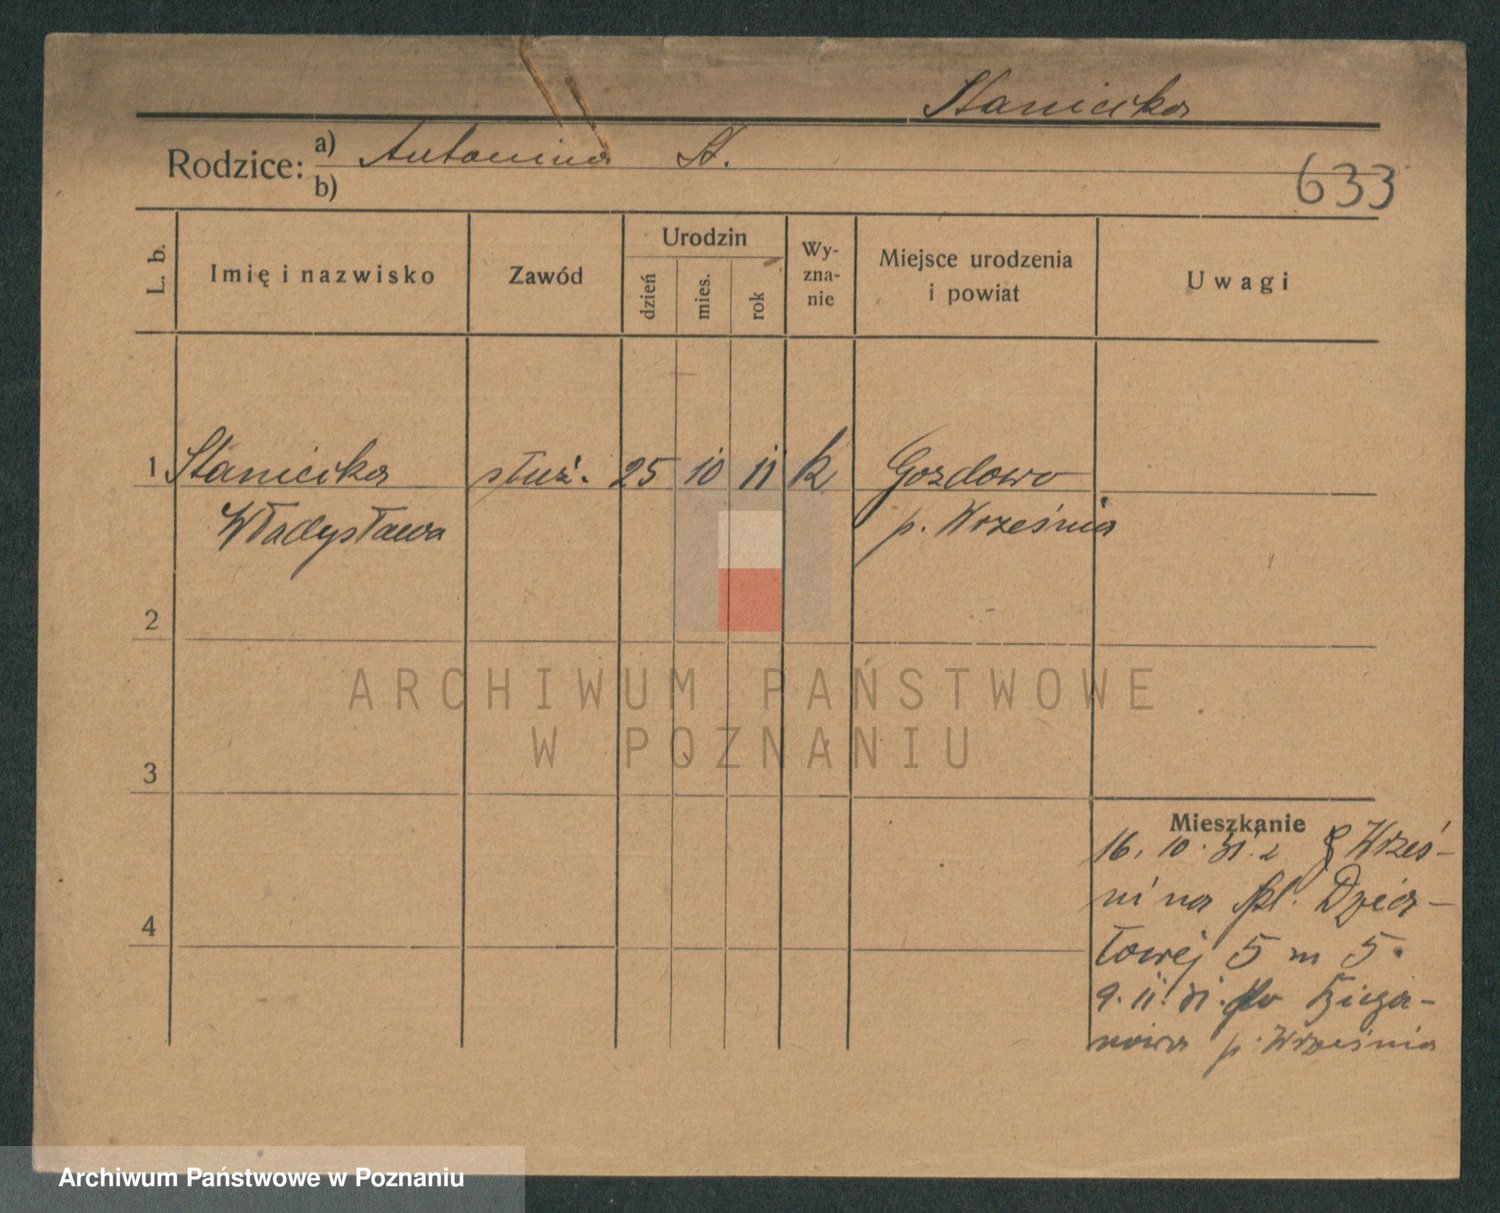 Staniecka
Rodzice: a) Antonina St.
b)
633
L. b.
Imię i nazwisko
Zawód
Urodzin
dzień
mies.
rok
Wy-
zna-
nie
Miejsce urodzenia
i powiat
Uwagi
1 Staniecka służ. 25 10 11 k Gozdowo
Władysława p. Września
2
3
4
Mieszkanie
16. 10. 31. z Wrześ-
ni na pl. Dzia-
łowej 5 m 5.
9. 11. 31. do
p. Września
ARCHIWUM PAŃSTWOWE
W POZNANIU
Archiwum Państwowe w Poznaniu